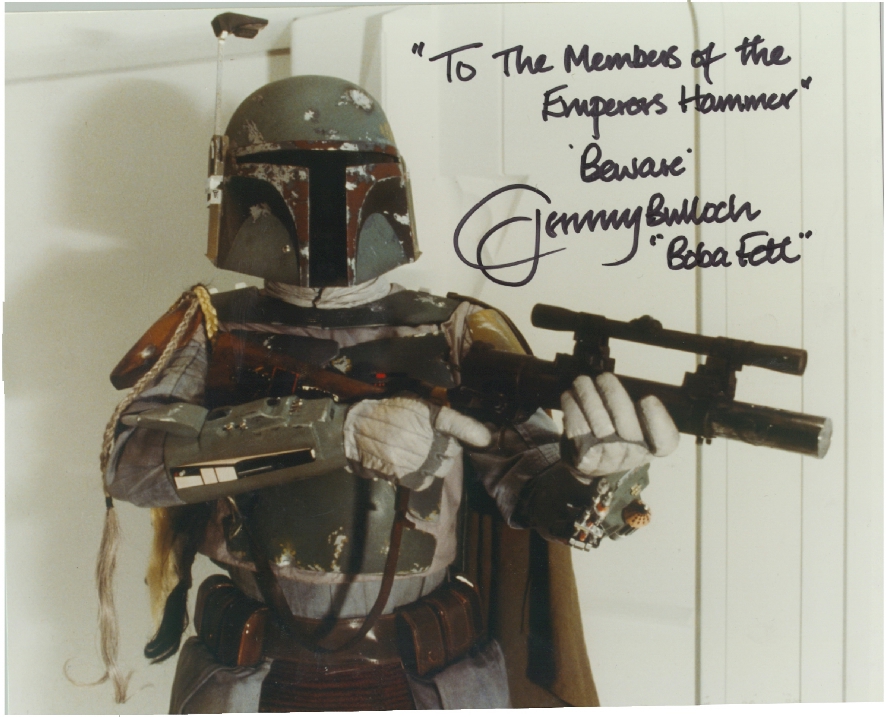 "To The Members of the
Emperors Hammer"
'Beware'
Jeremy Bulloch
"Boba Fett"